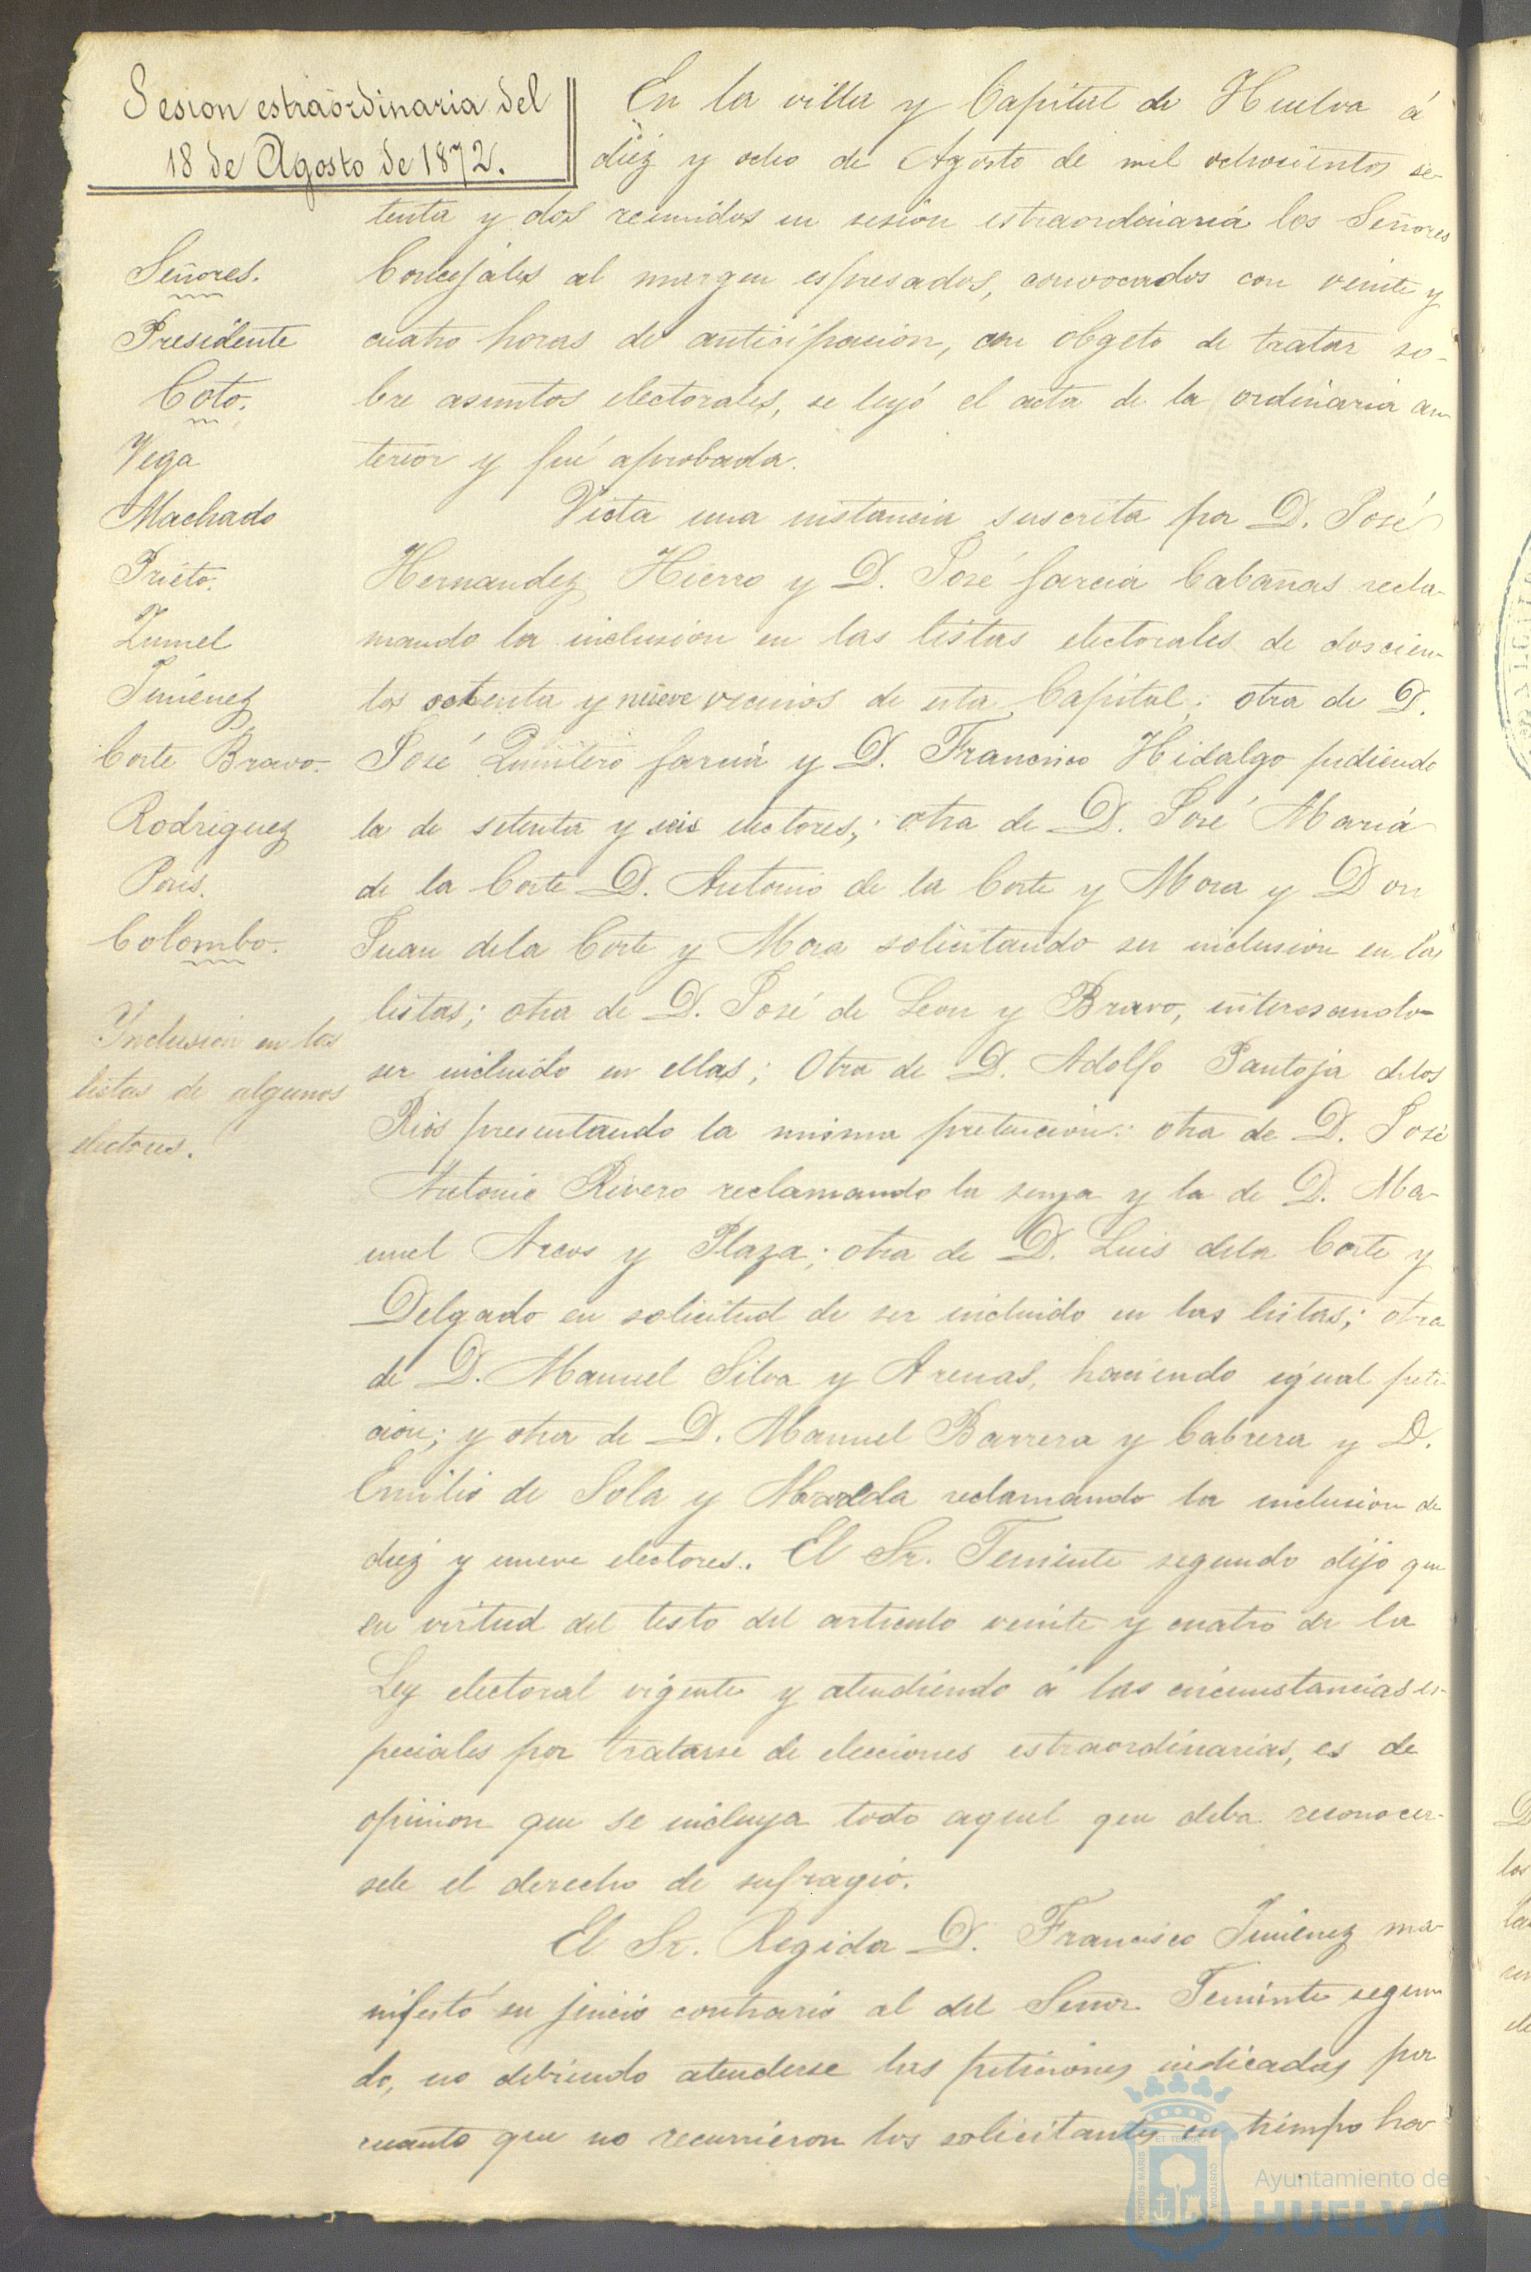 Sesion estraordinaria del
18 de Agosto de 1872.
Señores.
Presidente
Coto.
Vega
Machado
Prieto.
Zumel
Jimenez
Corte Bravo.
Rodriguez
Colombo.
Ynclusion en las
listas de algunos
electores.
En la villa y Capital de Huelva á
diez y ocho de Agosto de mil ochocientos se-
tenta y dos reunidos en sesión estraordinaria los Señores
Concejales al margen espresados, convocados con veinte y
cuatro horas de anticipacion, con obgeto de tratar so-
bre asuntos electorales, se leyó el acta de la ordinaria an-
terior y fué aprobada.
Vista una instancia suscrita por D. José
Hernandez Hierro y D. José Garcia Cabañas recla-
mando la inclusion en las listas electorales de doscien-
tos setenta y nueve vecinos de esta Capital; otra de D.
José Quintero Garcia y D. Francisco Hidalgo pidiendo
la de setenta y seis electores; otra de D. José Maria
de la Corte D. Antonio de la Corte y Mora y Don
Juan dela Corte y Mora solicitando su inclusion en las
listas; otra de D. José de Leon y Bravo, interesando
ser incluido en ellas; Otra de D. Adolfo Pantoja delos
Rios presentando la misma pretencion: otra de D. José
Antonio Rivero reclamando la suya y la de D. Ma-
nuel Arcos y Plaza; otra de D. Luis dela Corte y
Delgado en solicitud de ser incluido en las listas; otra
de D. Manuel Silva y Arenas, haciendo igual peti-
cion; y otra de D. Manuel Barrera y Cabrera y D.
Emilio de Sola y reclamando la inclusion de
diez y nueve electores. El Sr. Teniente segundo dijo que
en virtud del testo del articulo veinte y cuatro de la
Ley electoral vigente y atendiendo á las circunstancias es-
peciales por tratarse de elecciones estraordinarias, es de
opinion que se incluya todo aquel que deba reconocer-
sele el derecho de sufragio.
El Sr. Regidor D. Francisco Jimenez ma-
nifestó su juicio contrario al del Señor Teniente segun-
do, no debiendo atenderse las peticiones indicadas por
cuanto que no recurrieron los solicitantes en tiempo ha-
PORTUS MARIS
ET TERRAE
CUSTODIA
Ayuntamiento de
HUELVA